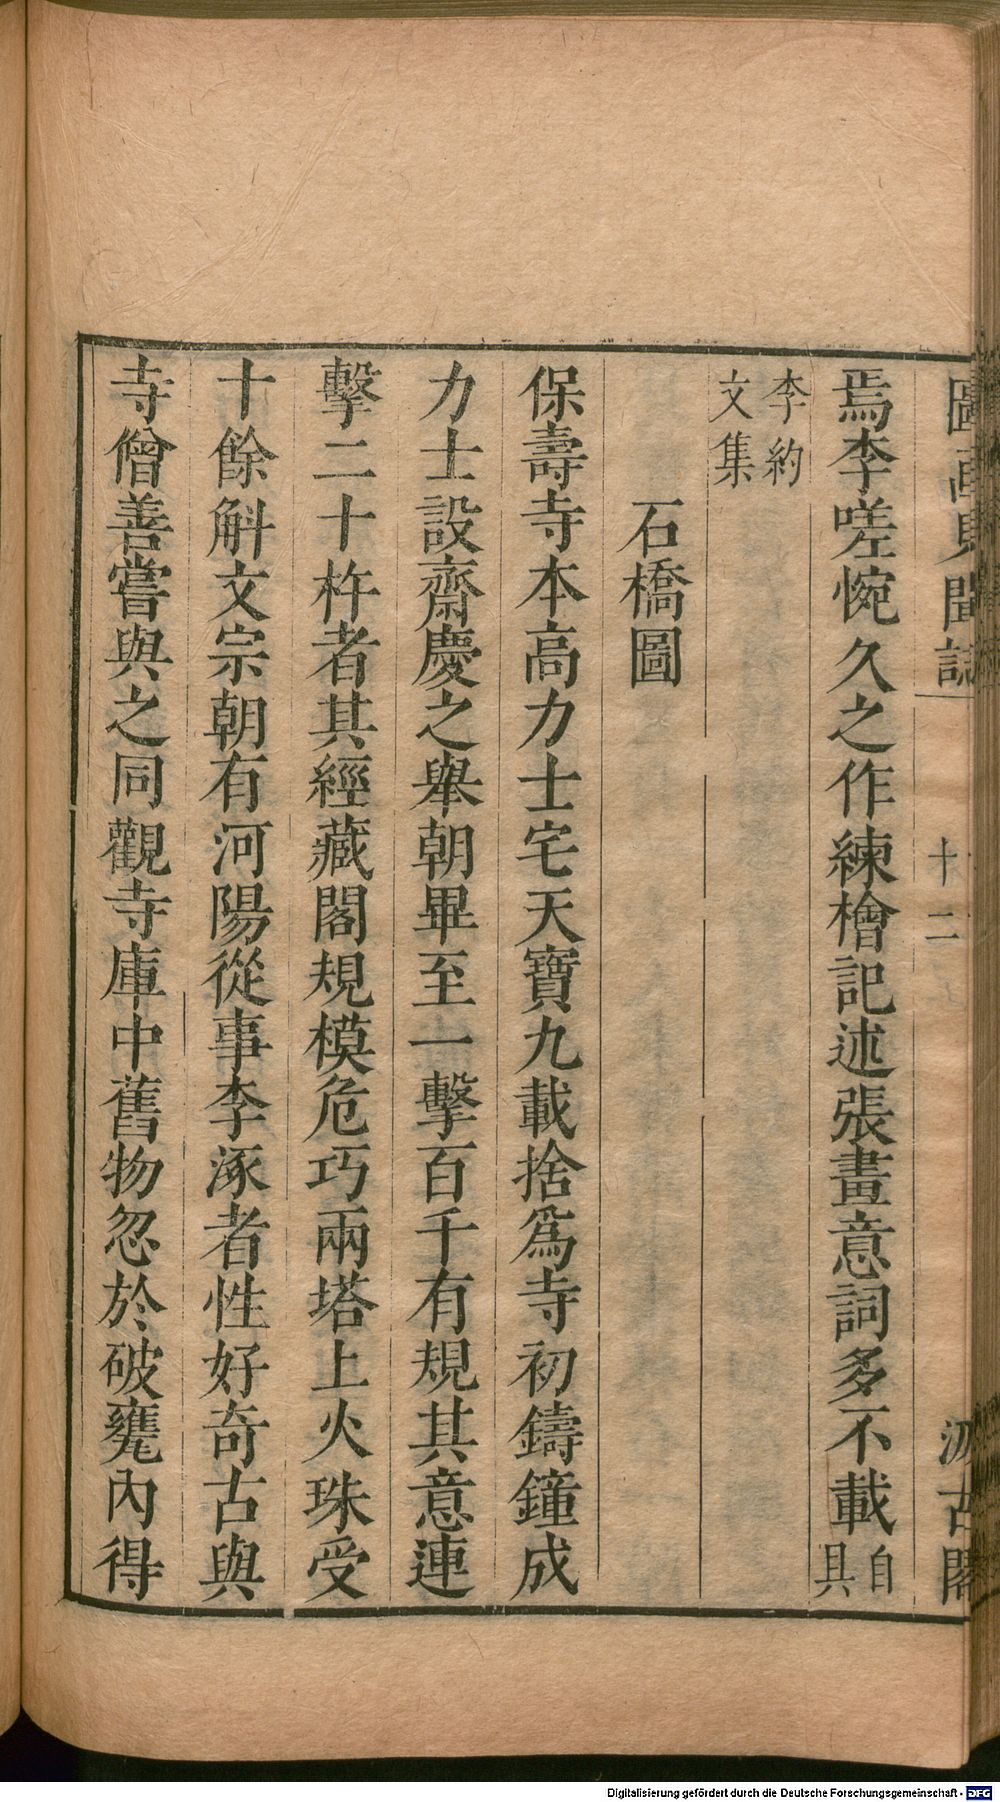 圖畫見聞誌 十二 汲古閣
焉李嗟惋久之作練檜記述張畫意詞多不載自具
李約文集
石橋圖
保壽寺本高力士宅天寶九載捨爲寺初鑄鐘成
力士設齋慶之舉朝畢至一擊百千有規其意連
擊二十杵者其經藏閣規模危巧兩塔上火珠受
十餘斛文宗朝有河陽從事李涿者性好奇古與
寺僧善嘗與之同觀寺庫中舊物忽於破甕內得
Digitalisierung gefördert durch die Deutsche Forschungsgemeinschaft - DFG